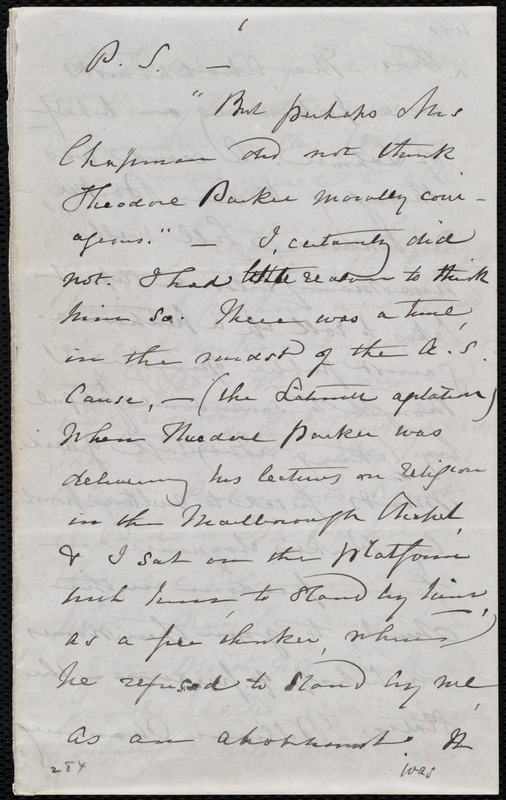 P. S. —
"But perhaps Mrs
Chapman did not think
Theodore Parker morally cour-
ageous." — I, certainly did
not. I had little reason to think
him so. There was a time,
in the midst of the A. S.
Cause, — (the Latimer agitation)
when Theodore Parker was
delivering his lectures on religion
in the Marlborough Chapel,
& I sat on the platform
with him, to stand by him,
as a free thinker, when
he refused to stand by me,
as an abolitionist. It
284
was